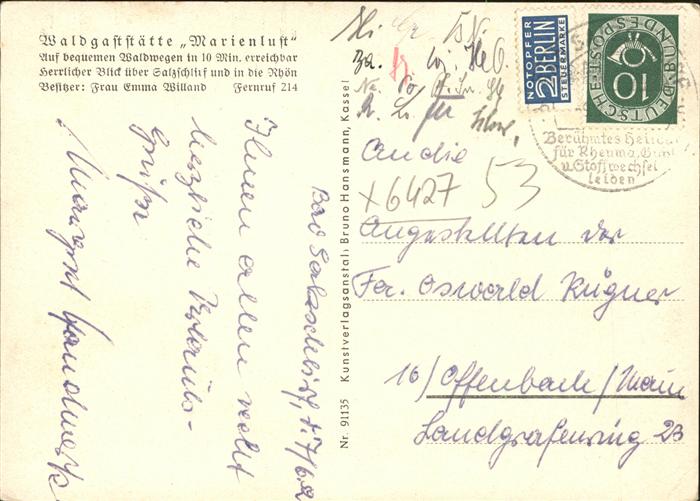 Waldgaststätte „Marienlust“
Auf bequemen Waldwegen in 10 Min. erreichbar
Herrlicher Blick über Salzschlirf und in die Rhön
Besitzer: Frau Emma Willand Fernruf 214
Bad Salzschlirf,
Ihnen allen recht
herzliche Urlaubs-
Grüße
Margret
Nr. 91135 Kunstverlagsanstalt Bruno Hansmann, Kassel
NOTOPFER
2 BERLIN
STEUERMARKE
DEUTSCHE BUNDESPOST
10
Berühmtes Heilbad
für Rheuma,
u. Stoffwechsel
leiden
x6427 53
An die
Angestellten der
Fa. Oswald Rügner
16/Offenbach/Main
Landgrafenring 23